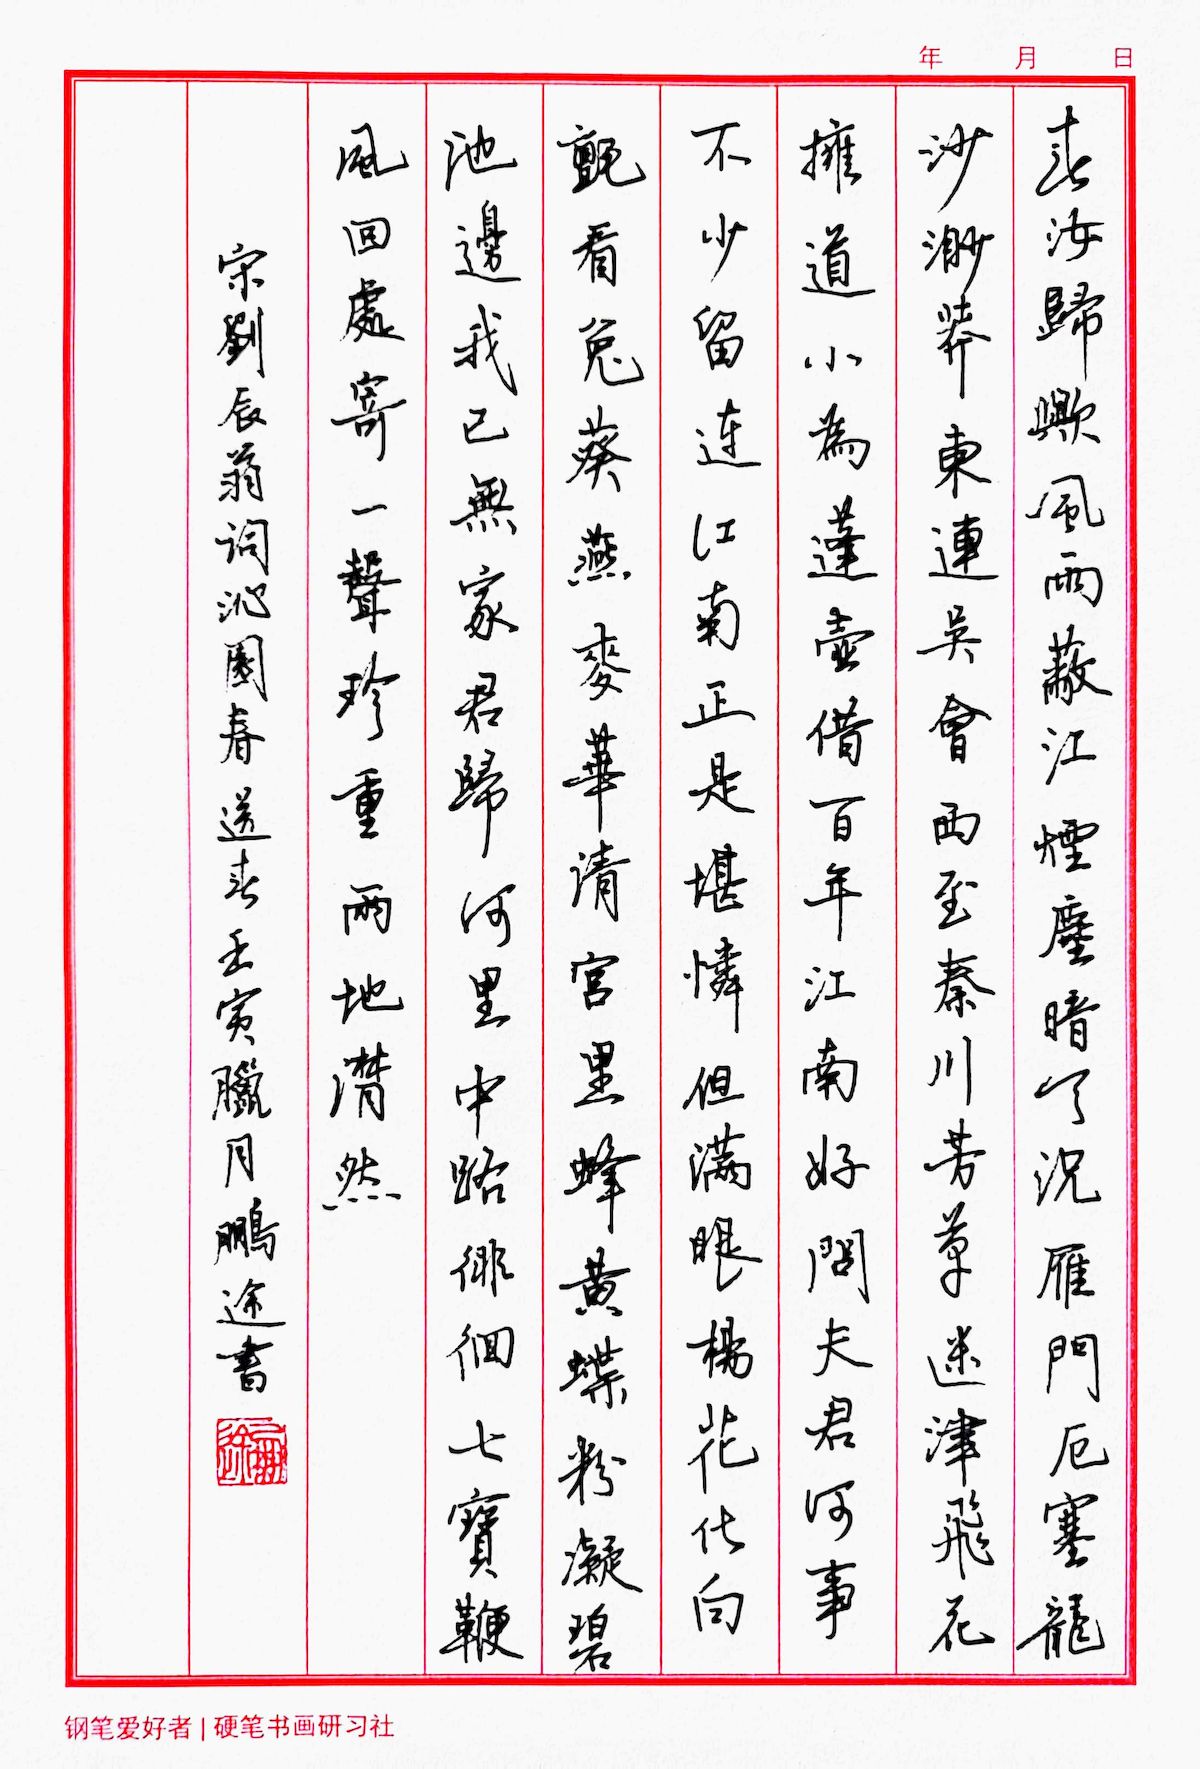 年 月 日
春汝歸歟風雨蔽江煙塵暗天況雁門厄塞龍
沙渺莽東連吳會西至秦川芳草迷津飛花
擁道小為蓬壺借百年江南好問夫君何事
不少留連江南正是堪憐但滿眼楊花化白
氈看兔葵燕麥華清宮里蜂黃蝶粉凝碧
池邊我已無家君歸何里中路徘徊七寶鞭
風回處寄一聲珍重兩地潸然
宋劉辰翁詞沁園春送春壬寅臘月鵬途書
钢笔爱好者 | 硬笔书画研习社